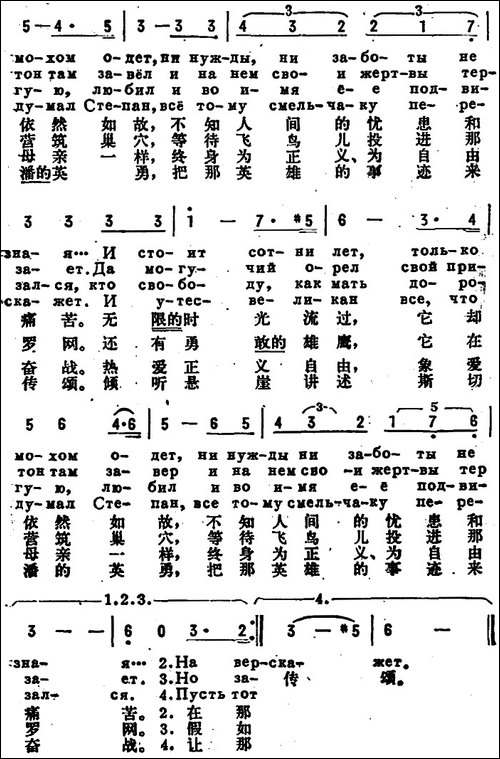 5 — 4· 5 | 3 — 3 3 | 4 3 2 2 1 7 |
мо-хом о-дет, ни нуж-ды, ни за-бо-ты не
тон там за-вёл и на нем сво-и жерт-вы тер-
гу-ю, лю-бил и во и-мя е-е под-ви-
ду-мал Сте-пан, всё то-му смель-ча-ку пе-ре-
依然如故，不知人间的忧患和
营筑巢穴，等待飞鸟儿投进那
母亲一样，终身为正义、为自由
潘的英勇，把那英雄的事迹来
3 3 3 3 | 1 — 7· #5 | 6 — 3· 4 |
зна-я… И сто-ит сот-ни лет, толь-ко
за-ет. Да мо-гу-чий о-рел свой при-
зал-ся, кто сво-бо-ду, как мать до-ро-
ска-жет. И у-тес-ве-ли-кан все, что
痛苦。无限的时光流过，它却
罗网。还有勇敢的雄鹰，它在
奋战。热爱正义自由，象爱
传颂。倾听悬崖讲述斯切
5 6 4·6 | 5 — 6 5 | 4 3 2 1 7 6 |
мо-хом о-дет, ни нуж-ды ни за-бо-ты не
тон там за-вер и на нем сво-и жерт-вы тер
гу-ю, лю-бил и во и-мя е-ё под-ви-
ду-мал Сте-пан, все то-му смель-ча-ку пе-ре-
依然如故，不知人间的忧患和
营筑巢穴，等待飞鸟儿投进那
母亲一样，终身为正义、为自由
潘的英勇，把那英雄的事迹来
1.2.3. 4.
3 — — | 6 0 3· 2 :|| 3 — #5 | 6 — ||
зна-я… 2.На вер-ска-жет.
за-ет. 3.Но за-传颂。
зал-ся. 4.Пусть тот
痛苦。2.在那
罗网。3.假如
奋战。4.让那